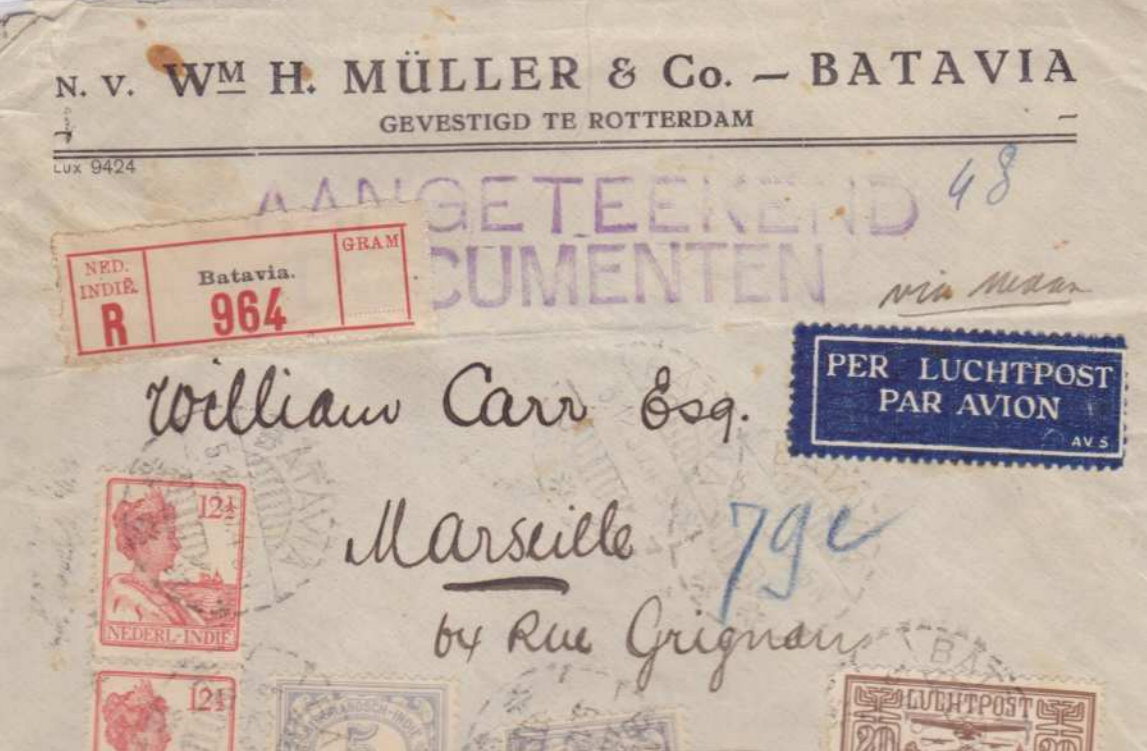 N. V. WM H. MÜLLER & Co. – BATAVIA
GEVESTIGD TE ROTTERDAM
LUX 9424
AANGETEEKEND
48
CUMENTEN
via Medan
NED. INDIË.
R
Batavia.
964
GRAM
PER LUCHTPOST
PAR AVION
AV 5
William Carr Esq.
Marseille
79c
64 Rue Grignan
12½
NEDERL-INDIË
BATAVIA
12½
5
LUCHTPOST
20